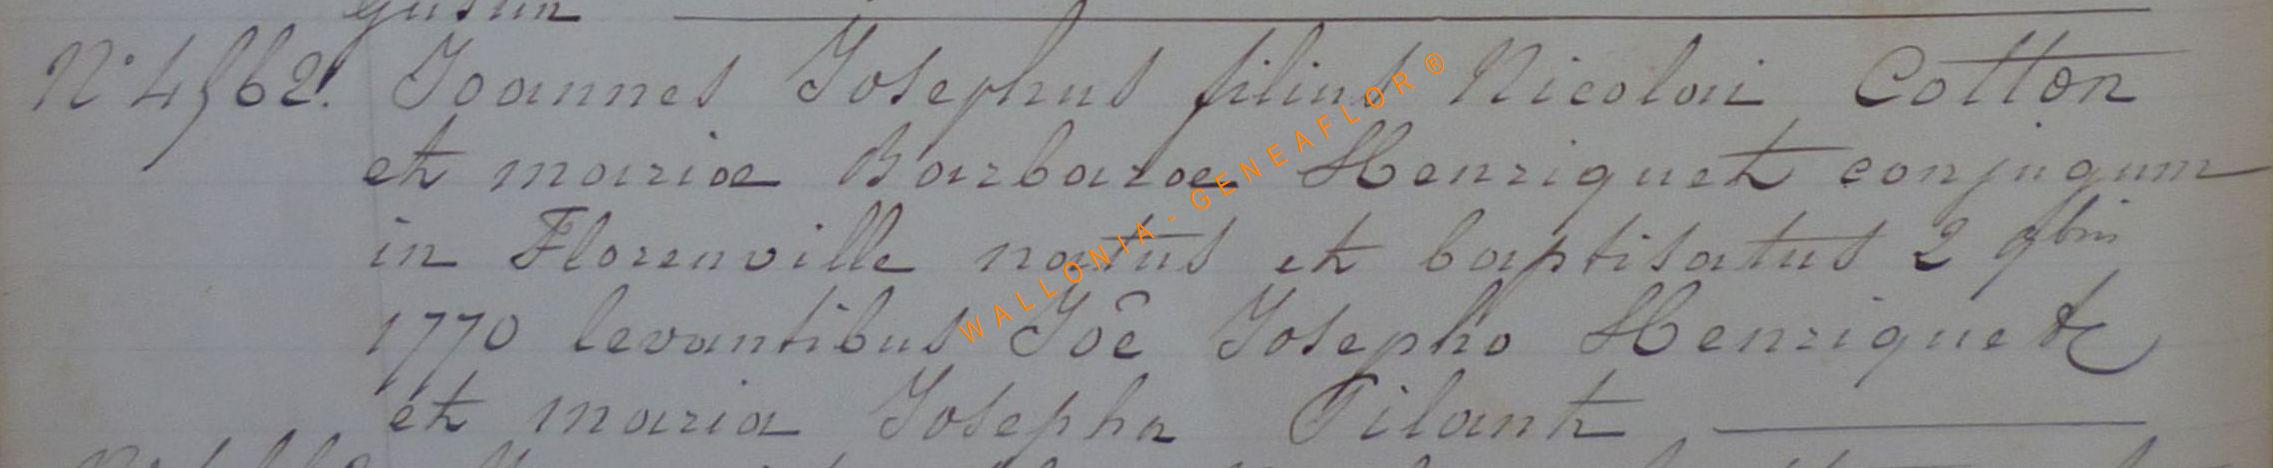 gustin
N° 4562. Joannes Josephus filius Nicolai Cotton
et mariæ Barbaræ Henriquet conjugum
in Florenville natus et baptisatus 2 9bris
1770 levantibus Joê Josepho Henriquet
et maria Josepha Pilant
WALLONIA - GENEAFLOR ®